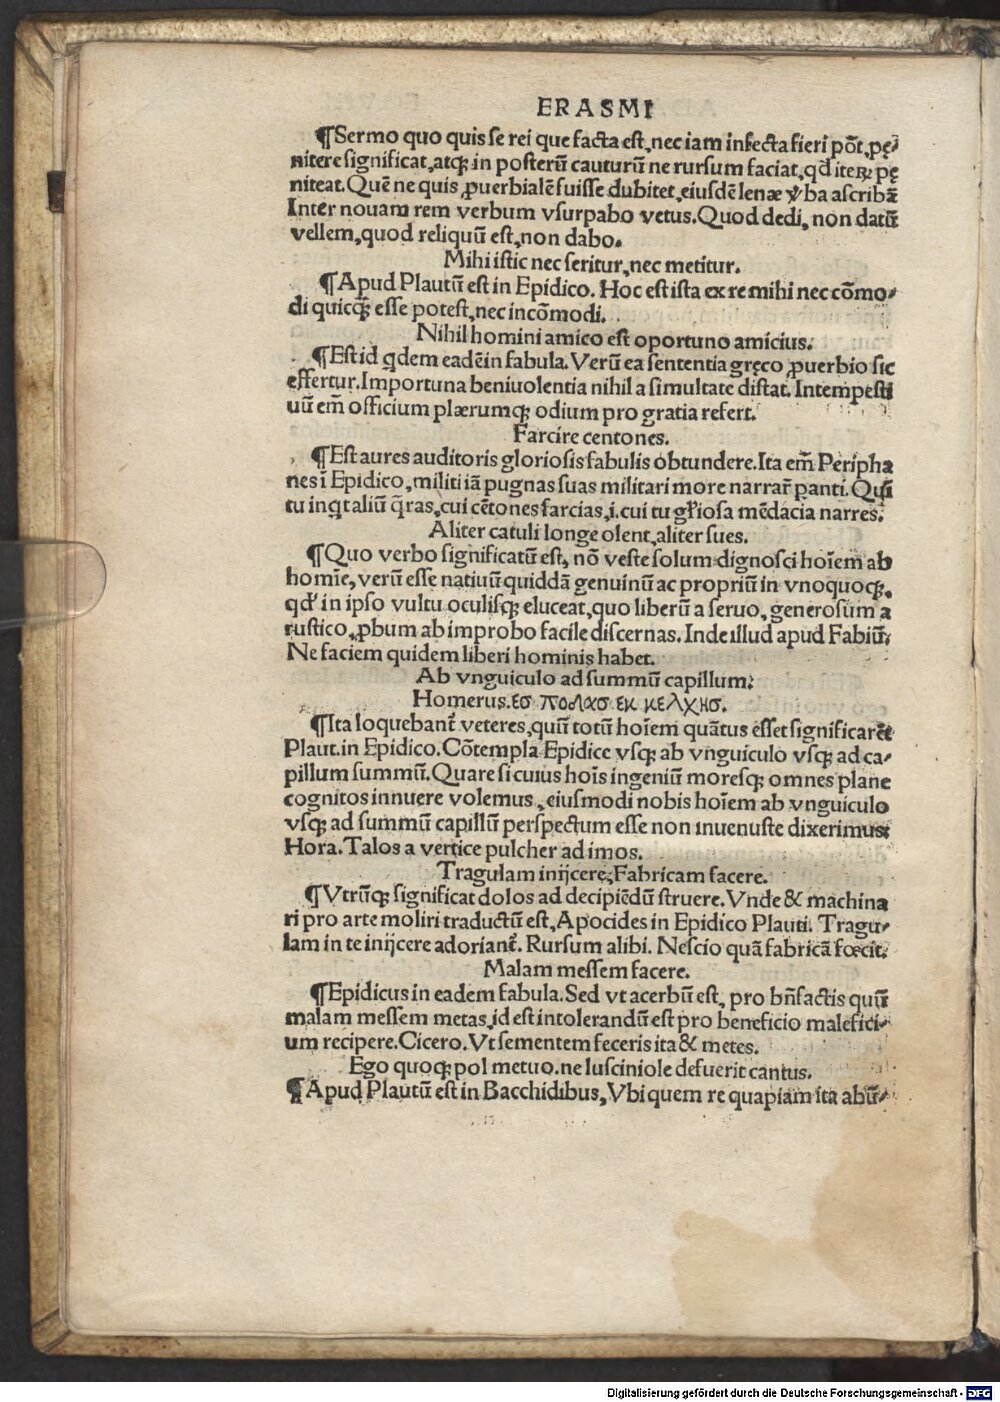 ERASMI
¶Sermo quo quis se rei que facta est, nec iam infecta fieri põt, pę⸗
nitere significat, atqꝫ in posterũ cauturũ ne rursum faciat, qđ iterꝫ pę
niteat. Quẽ ne quis ꝓuerbialẽ fuisse dubitet, eiusdẽ lenæ v̕ba ascribã
Inter nouam rem verbum vsurpabo vetus. Quod dedi, non datũ
vellem, quod reliquũ est, non dabo.
Mihi istic nec seritur, nec metitur.
¶Apud Plautũ est in Epidico. Hoc est ista ex re mihi nec cõmo⸗
di quicqꝫ esse potest, nec incõmodi.
Nihil homini amico est oportuno amicius.
¶Est id qdem eadẽ in fabula. Verũ ea sententia gręco ꝓuerbio sic
effertur. Importuna beniuolentia nihil a simultate distat. Intempesti
uũ em̃ officium plærumqꝫ odium pro gratia refert.
Farcire centones.
¶Est aures auditoris gloriosis fabulis obtundere. Ita em̃ Peripha
nes ĩ Epidico, militi iã pugnas suas militari more narrar̃ panti. Quin
tu inqt aliũ q̃ras, cui cẽtones farcias, .i. cui tu gl̃iosa mẽdacia narres.
Aliter catuli longe olent, aliter sues.
¶Quo verbo significatũ est, nõ veste solum dignosci hoĩem ab
homĩe, verũ esse natiuũ quiddã genuinũ ac propriũ in vnoquoqꝫ,
qđ in ipso vultu oculisqꝫ eluceat, quo liberũ a seruo, generosum a
rustico, ꝓbum ab improbo facile discernas. Inde illud apud Fabiũ.
Ne faciem quidem liberi hominis habet.
Ab vnguiculo ad summũ capillum.
Homerus. εσ ποδασ εκ κεφλησ.
¶Ita loquebant̃ veteres, quũ totũ hoĩem quãtus esset significarẽt
Plaut. in Epidico. Cõtempla Epidice vsqꝫ ab vnguiculo vsqꝫ ad ca⸗
pillum summũ. Quare si cuius hoĩs ingeniũ moresqꝫ omnes plane
cognitos innuere volemus, eiusmodi nobis hoĩem ab vnguiculo
vsqꝫ ad summũ capillũ perspectum esse non inuenuste dixerimus.
Hora. Talos a vertice pulcher ad imos.
Tragulam inijcere, Fabricam facere.
¶Vtrũqꝫ significat dolos ad decipiẽdũ struere. Vnde & machina
ri pro arte moliri traductũ est, Apocides in Epidico Plauti. Tragu⸗
lam in te inijcere adoriant̃. Rursum alibi. Nescio quã fabricã fœcit.
Malam messem facere.
¶Epidicus in eadem fabula. Sed vt acerbũ est, pro bñfactis quũ
malam messem metas, id est intolerandũ est pro beneficio malefici⸗
um recipere. Cicero. Vt sementem feceris ita & metes.
Ego quoqꝫ pol metuo. ne lusciniole defuerit cantus.
¶Apud Plautũ est in Bacchidibus, Vbi quem re quapiam ita abũ⸗
Digitalisierung gefördert durch die Deutsche Forschungsgemeinschaft - DFG